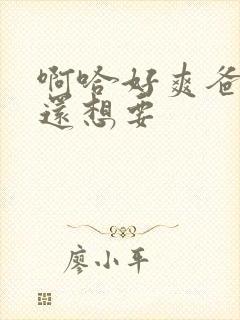 啊哈好爽爸
還想要
廖小平